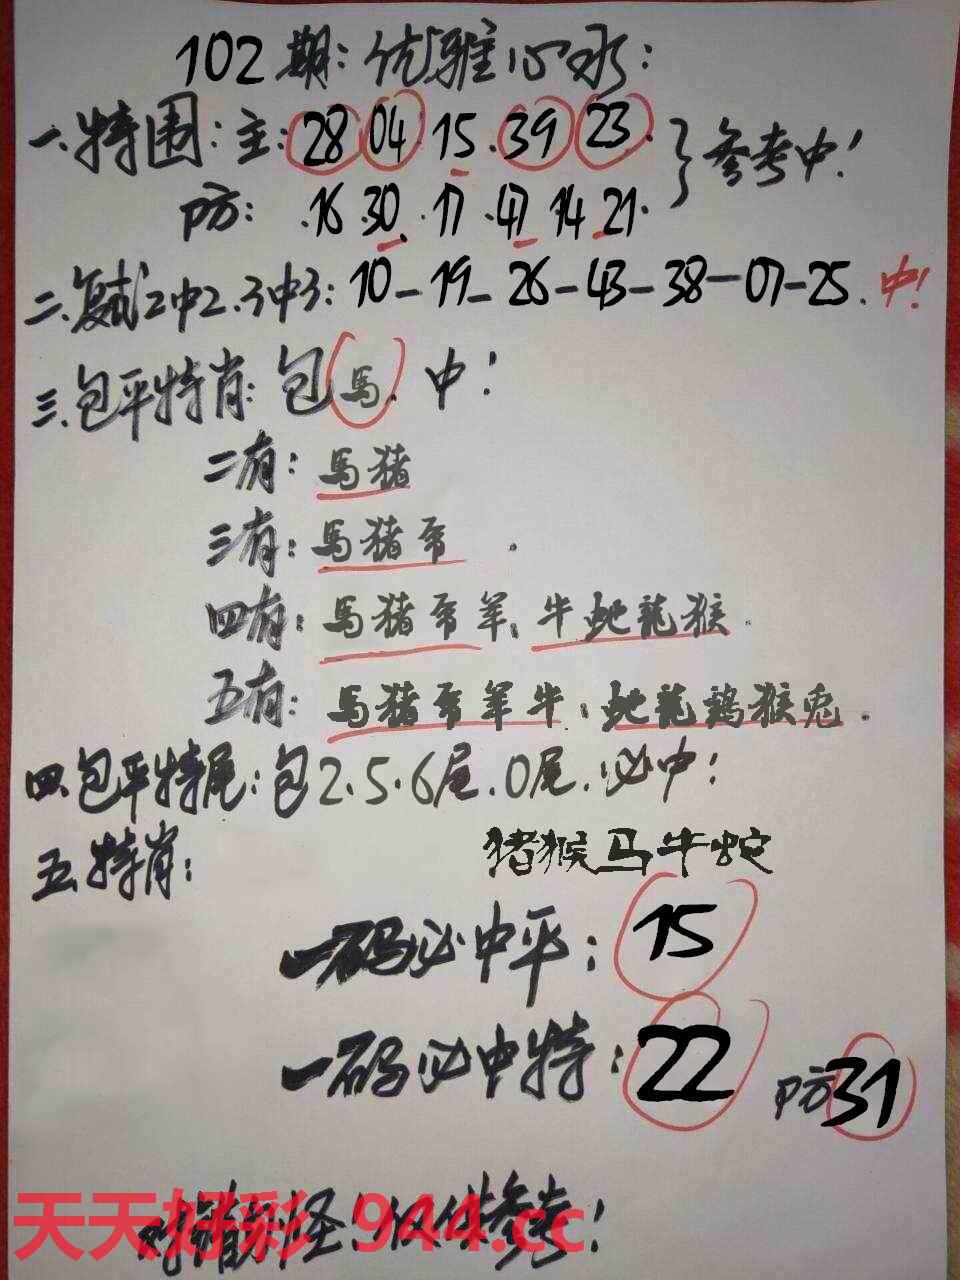 102期:优雅心水:
一.特围:主:28 04 15.39 23.
参考中!
防: .16 30. .17 .47 14 21.
二.复式2中2.3中3:10-19-26-43-38-07-25.中!
三.包平特肖:包馬.中!
二有:馬猪
三有:馬猪帝.
四有:馬猪帝羊,牛蛇龍猴.
五有:馬猪帝羊牛:蛇龍鷄猴兎.
四.包平特尾:包2.5.6尾.0尾.必中!
五.特肖: 猪猴马牛蛇
一码必中平:15
一码必中特:22 防31
对猜别怪!仅供参考!
天天好彩.944.cc